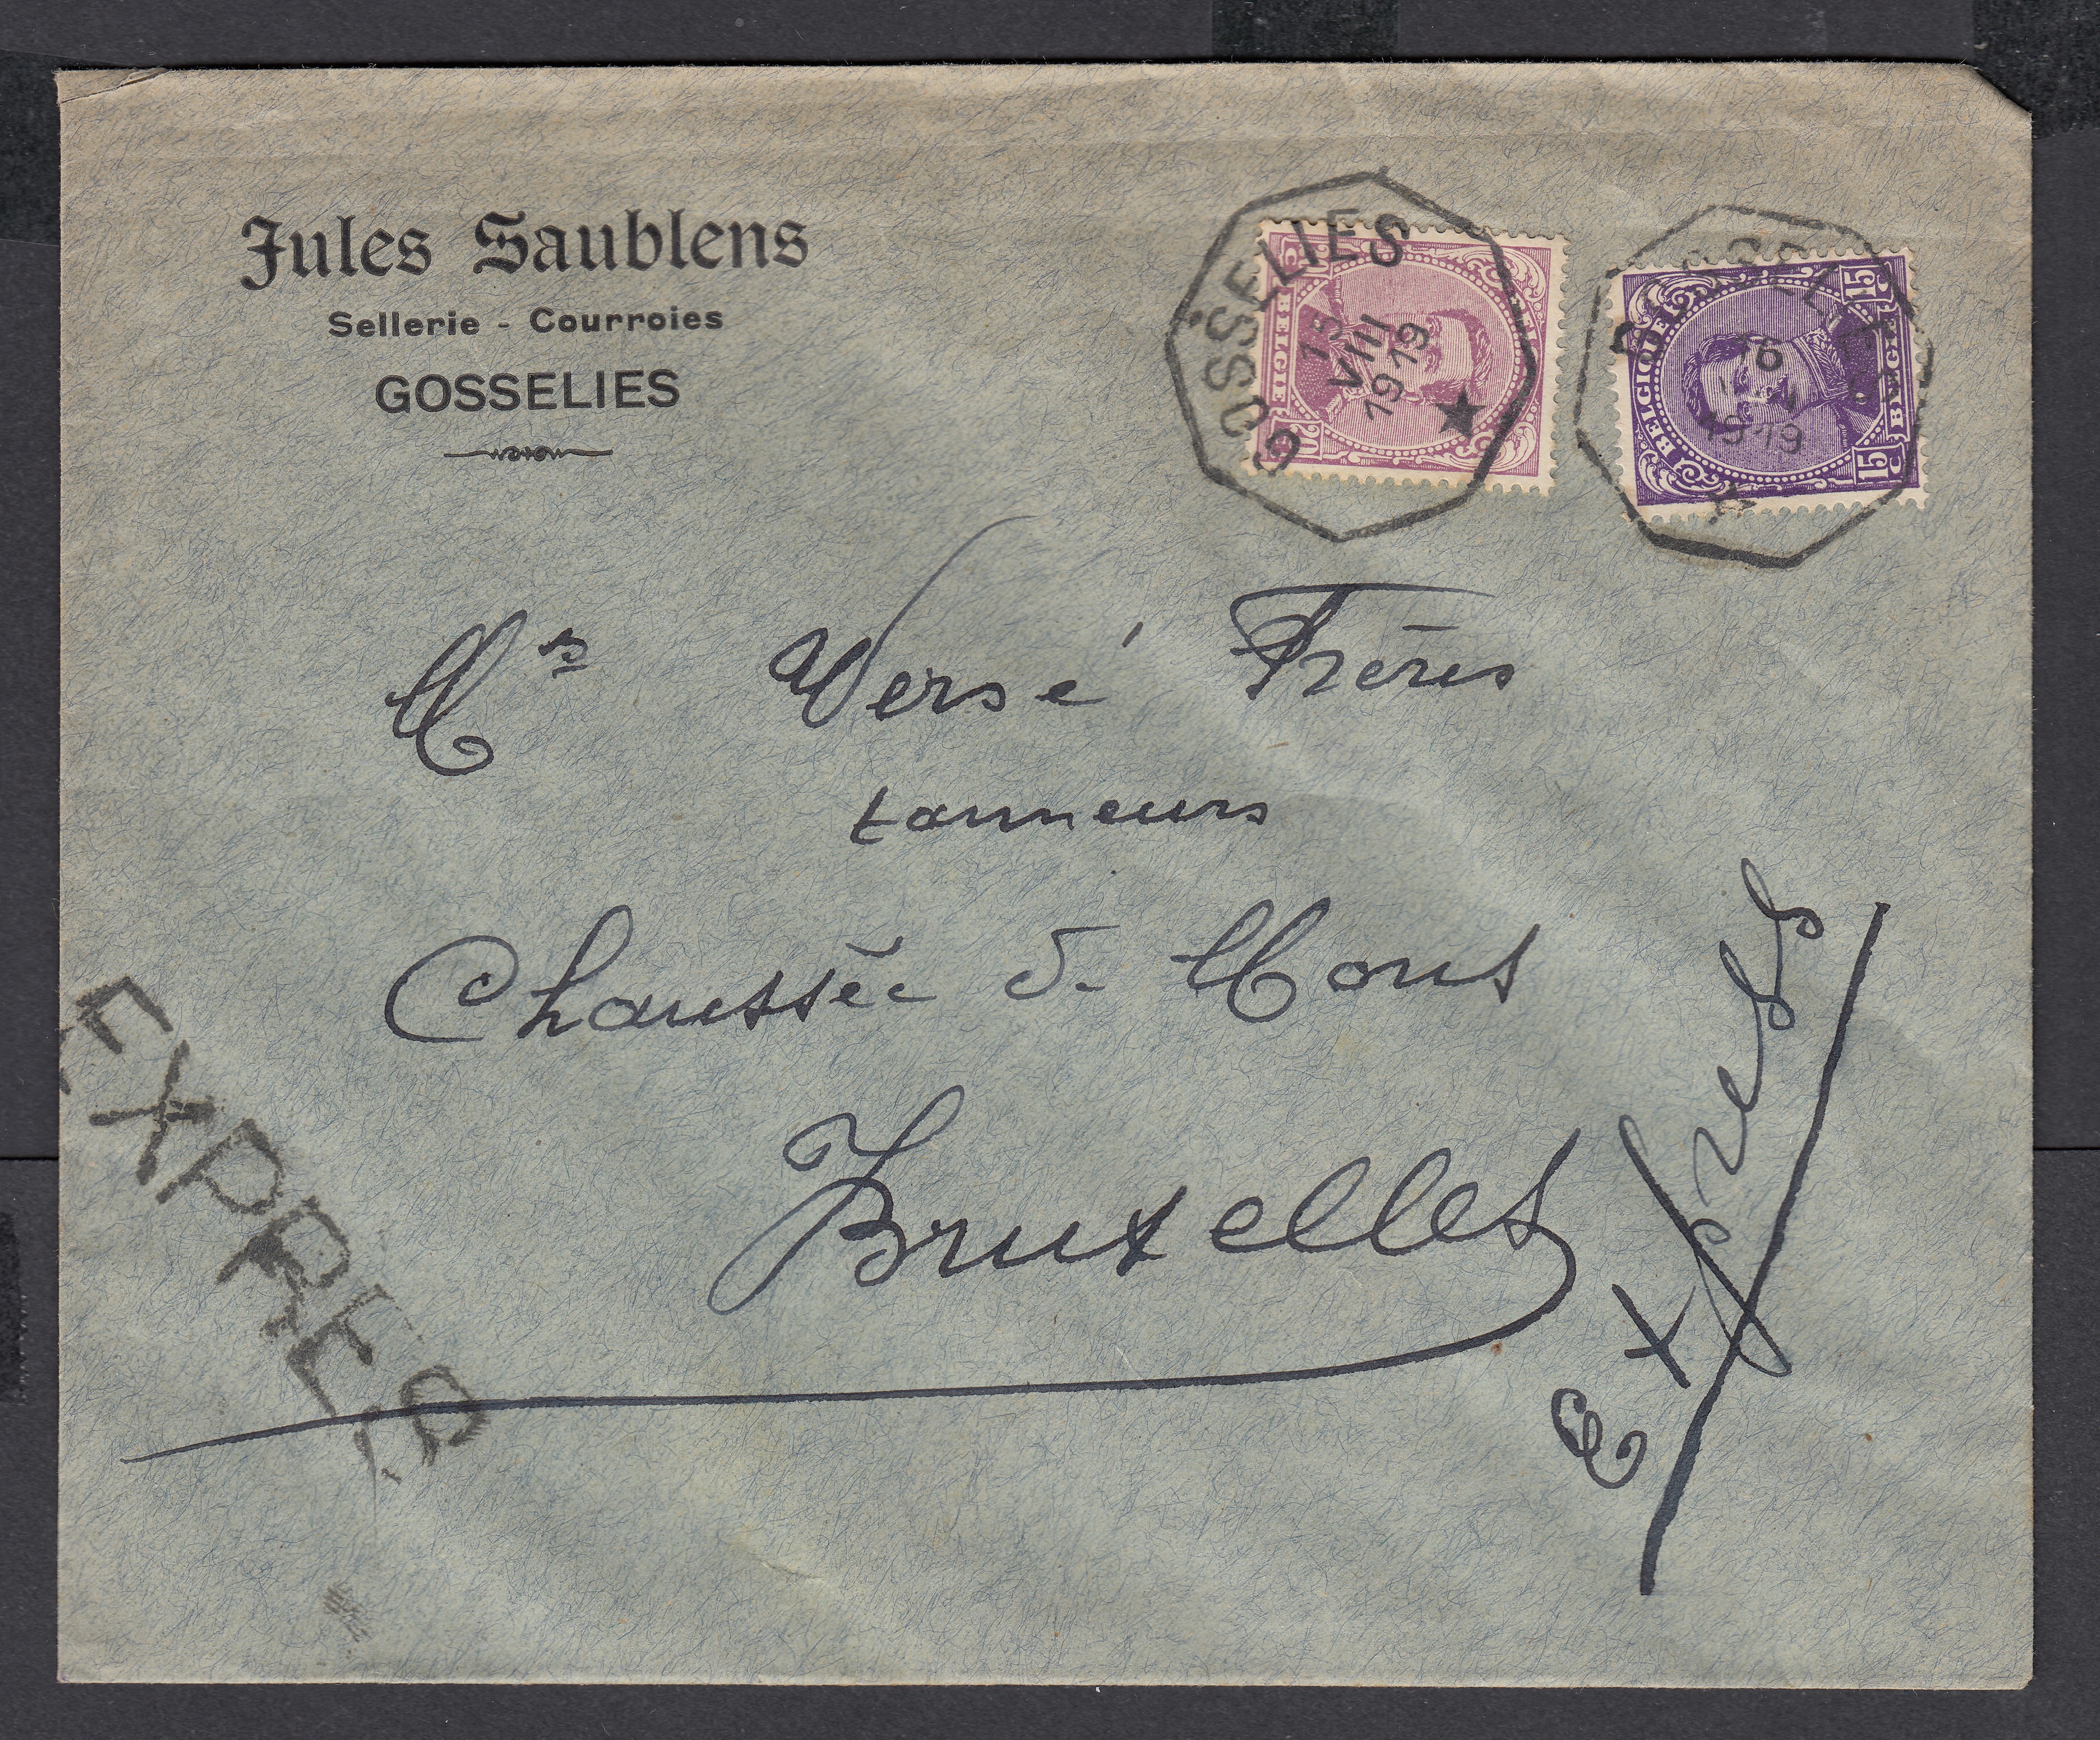 Jules Saublens
Sellerie - Courroies
GOSSELIES
GOSSELIES
15
VIII
1919
BELGIE
GOSSELIES
1919
BELGIQUE
BELGIE
15 C
15 C
Mrs Versé Frères
tanneurs
Chaussée de Mons
Bruxelles
Express
EXPRES